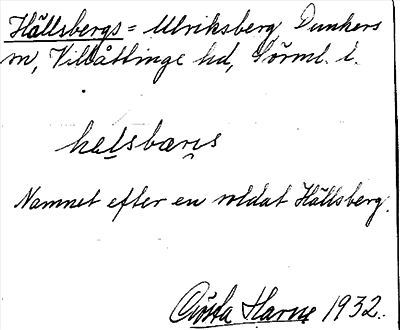 Hällsbergs = Ulriksberg, Dunkers
sn, Villåttinge hd, Sörml. l.
helsbærıs
Namnet efter en soldat Hällsberg.
Gösta Harne 1932.